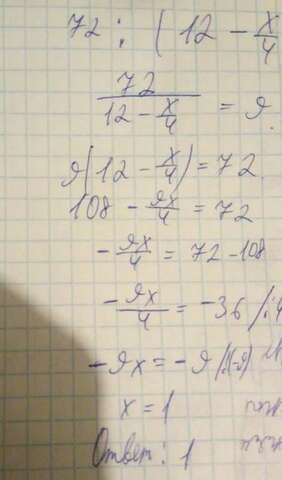 72 : ( 12 - x/4
72/(12 - x/4) = 9
9(12 - x/4) = 72
108 - 9x/4 = 72
- 9x/4 = 72 - 108
- 9x/4 = -36 /:4
- 9x = -9 /:(-9)
x = 1
Ответ: 1